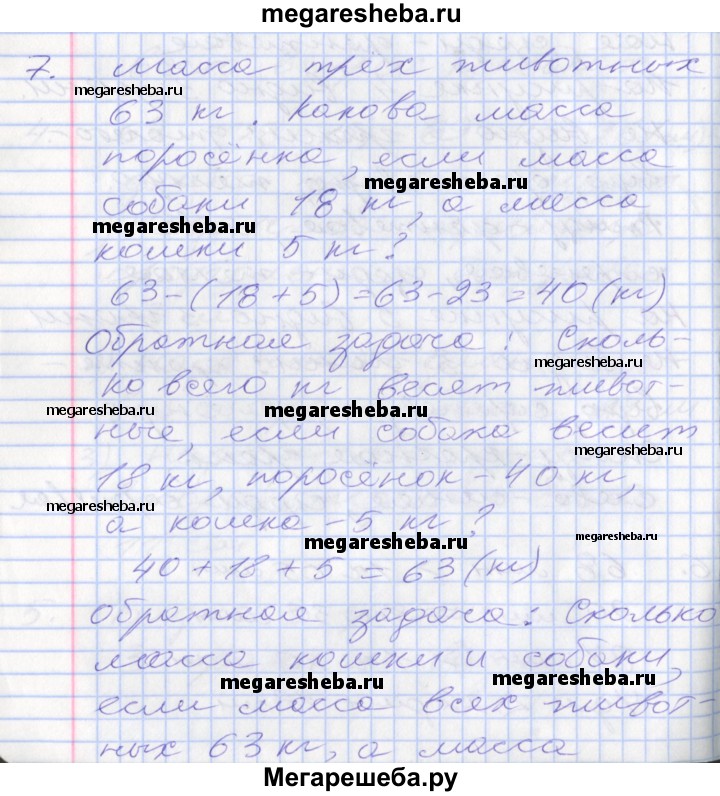 megaresheba.ru
7. Масса трёх животных
megaresheba.ru
63 кг. Какова масса
поросёнка, если масса
megaresheba.ru
собаки 18 кг, а масса
megaresheba.ru
кошки 5 кг?
63-(18+5)=63-23=40(кг)
Обратная задача: Сколь-
megaresheba.ru
ко всего кг весят живот-
megaresheba.ru
megaresheba.ru
ные, если собака весит
18 кг, поросёнок - 40 кг,
megaresheba.ru
а кошка - 5 кг?
megaresheba.ru
40+18+5=63(кг)
Обратная задача: Сколько
масса кошки и собаки,
megaresheba.ru
megaresheba.ru
если масса всех живот-
ных 63 кг, а масса
Мегарешеба.ру